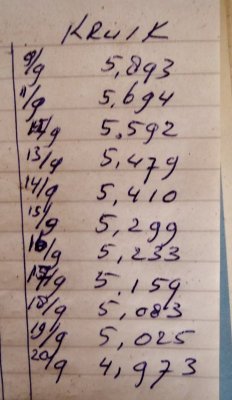 KRUIK
9/9 5,893
11/9 5,694
12/9 5.592
13/9 5,479
14/9 5,410
15/9 5,299
16/9 5,233
17/9 5.159
18/9 5,083
19/9 5,025
20/9 4,973